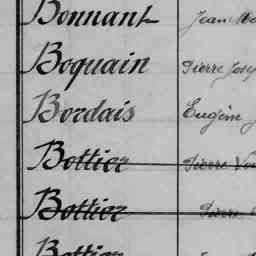 Bonnant Jean
Boquain Pierre
Bordais Eugène
Bottier Pierre
Bottier Pierre
Bottier